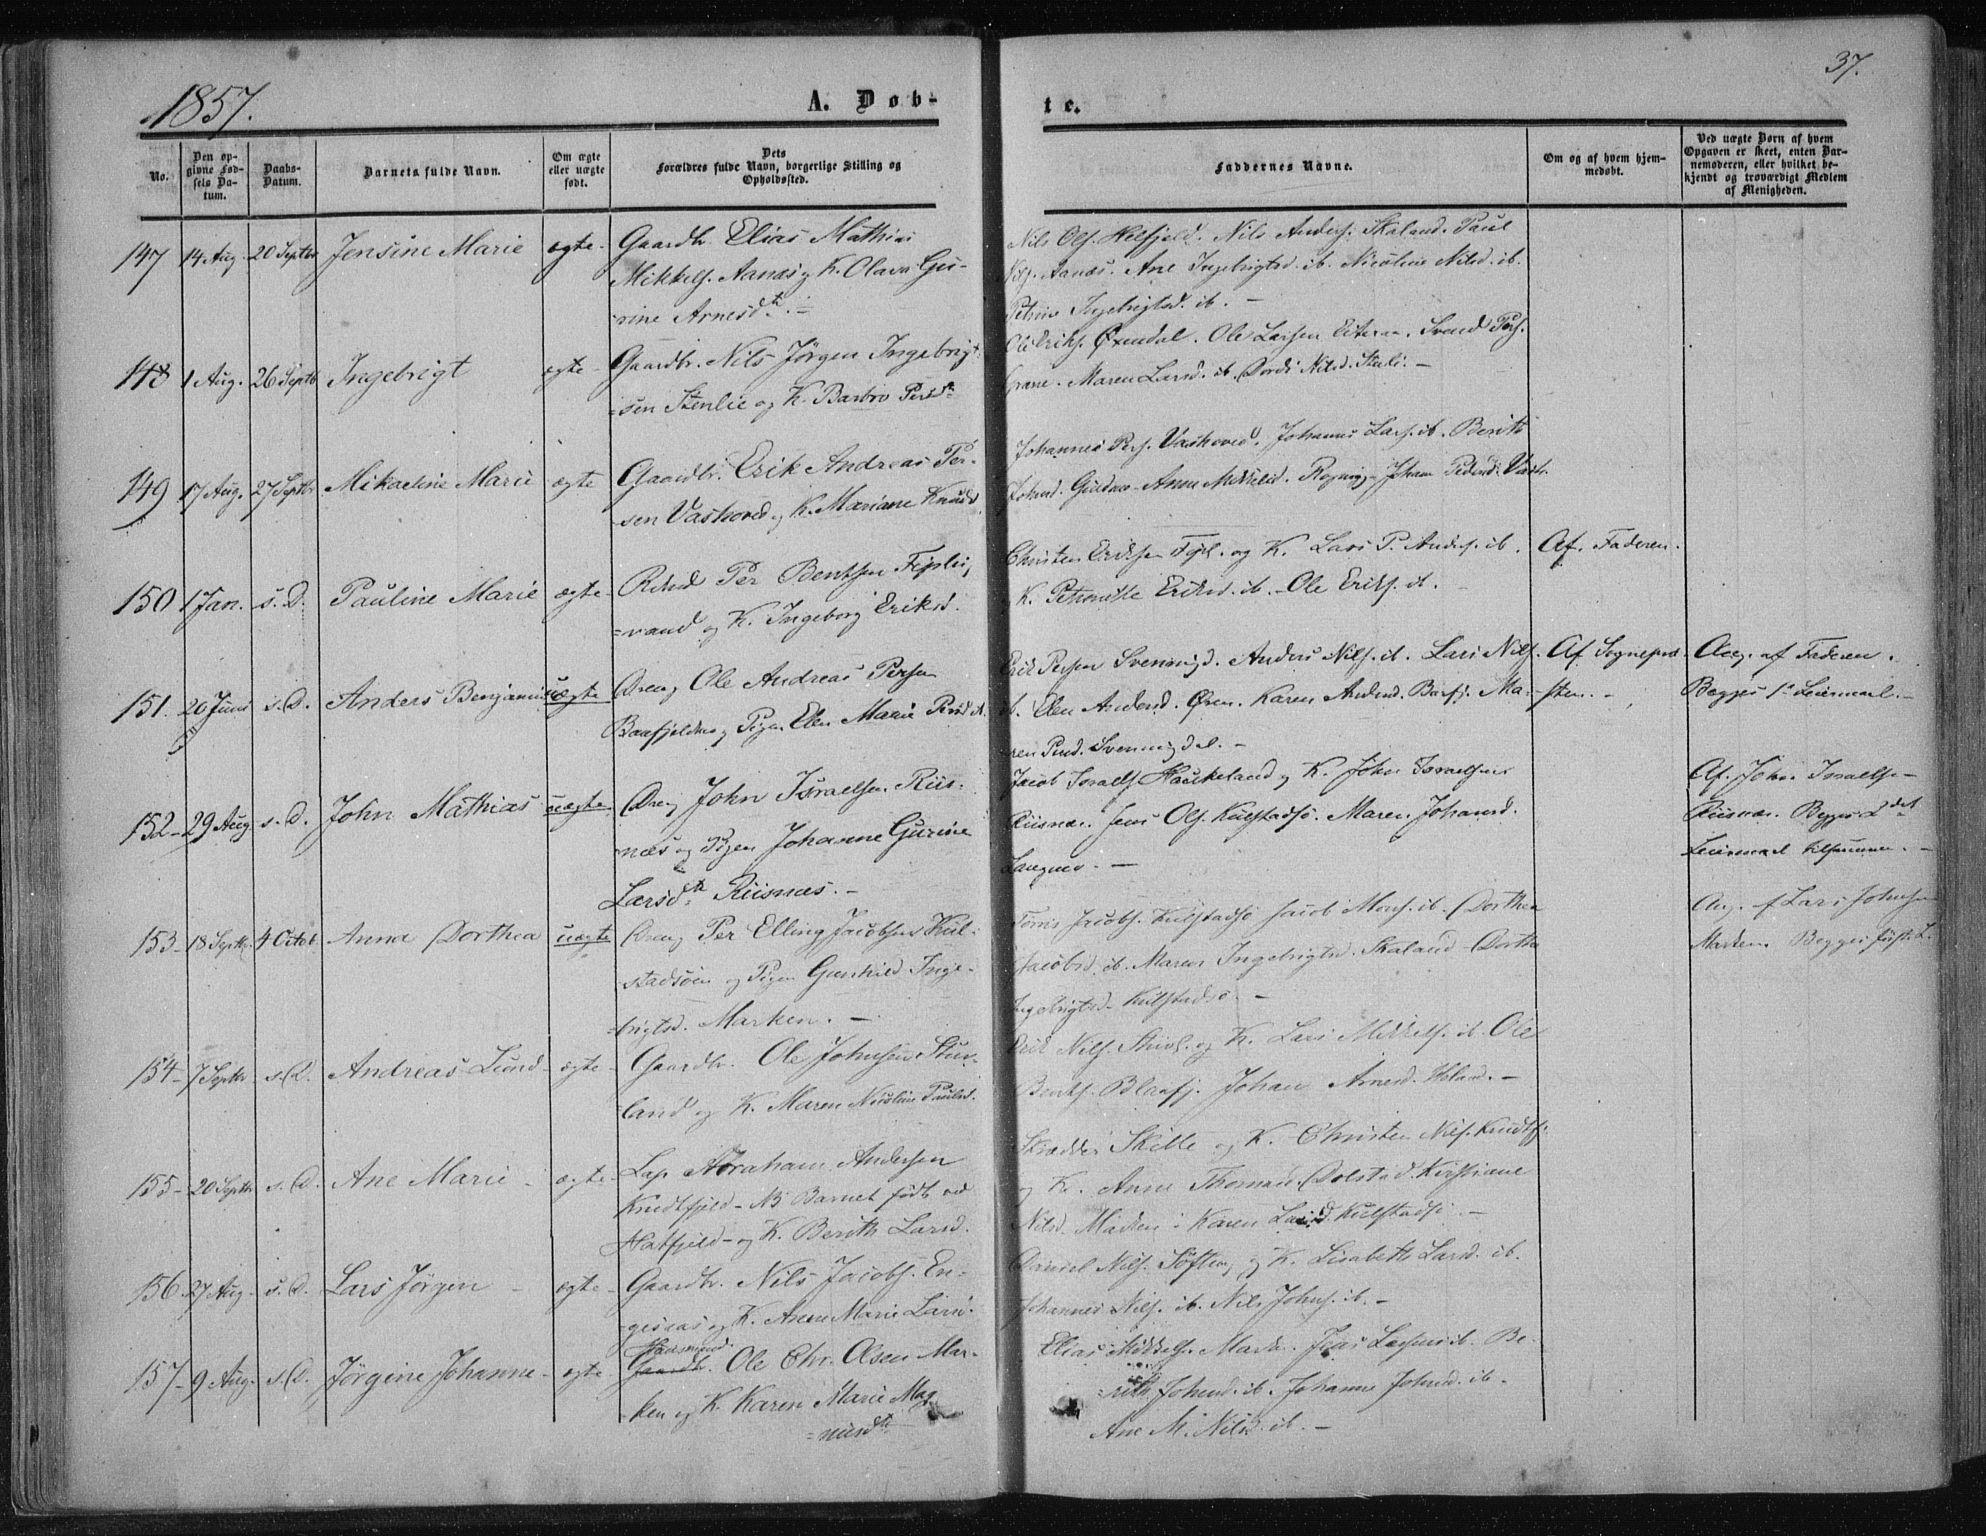 1857.
A. Døb-
te.
37.
No.
Den op-
givne Fød-
sels Da-
tum.
Daabs-
Datum.
Barnets fulde Navn.
Om ægte
eller uægte
født.
Dets
Forældres fulde Navn, borgerlige Stilling og
Opholdssted.
Faddernes Navne.
Om og af hvem hjem-
medøbt.
Ved uægte Børn af hvem
Opgaven er skeet, enten Bar-
nemoderen, eller hvilket be-
kjendt og troværdigt Medlem
af Menigheden.
147 14 Aug. 20 Septbr Jensine Marie ægte - Gaardbr. Elias Mathias
Mikkels. Aanæs og K. Olava Gu-
rine Arnesdtr. -
Nils Ols. Hatfjeld. Nils Anders. Skaland. Paul
Aanæs. Ane Ingebrigtsd. ib. Nicoline Nilsd. ib.
Petrine Ingebrigtsd. ib. -
148 1 Aug. 26 Septb Ingebrigt ægte - Gaardbr. Nils Jørgen Ingebrigt-
sen Stenlie og K. Barbro Persdr.
Ole Eriks. Øxendal. Ole Larsen Eiteraa. Svend Pers.
Grane. Maren Larsd. ib. Dordi Nilsd. Stuli. -
149 17 Aug. 27 Septbr Mikaeline Marie ægte Gaardbr. Erik Andreas Per-
sen Vashoved og K. Mariane Knudsd.
Johannes Pers. Vashoved. Johannes Lars. ib. Berith
Johnsd. Anne Mikkelsd. Johan Pedersd.
150 1 Jan. s. D. Pauline Marie ægte - Per Bentsen Fiplin-
vand og K. Ingeborg Eriksd.
Christen Eriksen Fipl. og K. Lars P. Anders. ib.
K. Petronelle Eriksd. ib. - Ole Eriks. ib. -
Af Faderen.
151. 20 Juni s. D. Anders Benjamin uægte Dreng Ole Andreas Persen
Baafjeldmo og Pigen Elen Marie Persd. ib.
Erik Persen Svenningd. Anders Nils. ib. Lars Nils.
ib. Elen Andersd. Øren. Karen Andersd. Baafj. Ma-
ren Persd. Svenningdal. -
Af Sognepræ-
sten. -
Ang. af Faderen.
Begges 1ste Leiermaal. -
152 - 29 Aug s. D. John Mathias uægte. Dreng John Israelsen Riis-
næs og Pigen Johanne Gurine
Larsdtr. Riisnæs. -
Jacob Israels. Haukeland og K. John Israelsens
Riisnæs. Jens Ols. Kulstadsø. Maren Johansd.
Langnes. -
Af John Israelsen
Riisnæs. Begges 2det
Leiermaal tilsammen. -
153 - 18 Septbr 4 Octob. Anna Dorthea uægte Dreng Per Elling Jacobsen Kul-
stadsøen og Pigen Gunhild Inge-
brigtsd. Marken. -
Tønnis Jacobs. Kulstadsø Jacob Mons. ib. Dorthea
Jacobsd. ib. Maren Ingebrigtsd. Skaland - Dorthe
Ingebrigtsd. Kulstadsø. -
Ang. af Lars Johnsen
Marken. Begges første L.
154 - 7 Septbr s. D. Andreas Lund - ægte - Gaardbr. Ole Johnsen Stuv-
land og K. Maren Nicoline Paulsd.
Erik Nils. og K. Lars Mikkels. ib. Ole
Bents. Blaafj. Johan Arnesd. -
155 - 20 Septbr s. D. Ane Marie - ægte - Lap. Abraham Andersen
Knudtfjeld - NB Barnet født ved
Hatfjeld - og K. Berith Larsd.
Skrædder Skille og K. Christen Nils. Knudtfj.
og K. Anne Thomasd. Dolstad. Kirstiane
Nilsd. Marken. Karen Larsd. Kulstadsø. -
156 - 27 Aug. s. D. Lars Jørgen - ægte - Gaardbr. Nils Jacobs. En-
gesaas og K. Anne Marie Larsd.
Daniel Nils. Søfting og K. Lisabeth Larsd. ib.
Johannes Nils. ib. Nils Johns. ib. -
157 - 9 Aug. s. D. Jørgine Johanne - ægte - Huusmand
Gaardbr. Ole Chr. Olsen Mar-
ken og K. Karen Marie Mag-
nusdtr.
Elias Mikkels. Marken. Larsen ib. Be-
rith Johnsd. ib. Johanne Johnsd. ib. -
Ane M. Nilsd. ib. -